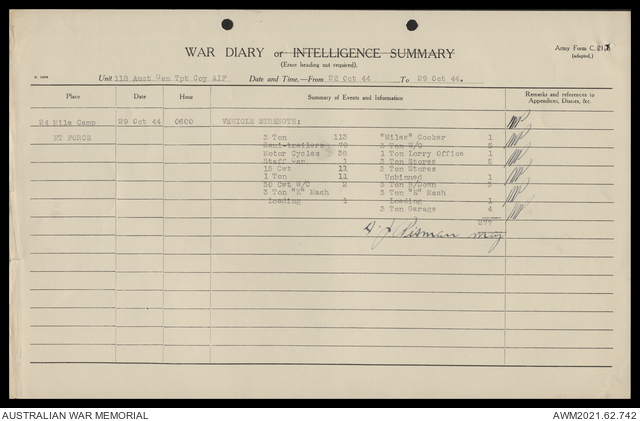 WAR DIARY or INTELLIGENCE SUMMARY
(Erase heading not required).
Army Form C.21
(adapted.)
Unit 118 Aust Gen Tpt Coy AIF Date and Time.—From 22 Oct 44 To 29 Oct 44.
Place Date Hour Summary of Events and Information Remarks and references to Appendices, Diaries, &c.
24 Mile Camp 29 Oct 44 0600 VEHICLE STRENGTH:
NT FORCE
3 Ton 113 "Wiles" Cooker 1
Semi-trailers 3 Ton 5
Motor Cycles 1 Ton Lorry Office 1
Staff Car 1 3 Ton Stores 5
15 Cwt 11 3 Ton Stores
1 Ton 11 Unbinned 1
30 Cwt W/C 2 3 Ton B/Down 3
3 Ton Mach 3 Ton Mach
Loading 1 Loading 1
3 Ton Garage 4
277
Maj
AUSTRALIAN WAR MEMORIAL AWM2021.62.742